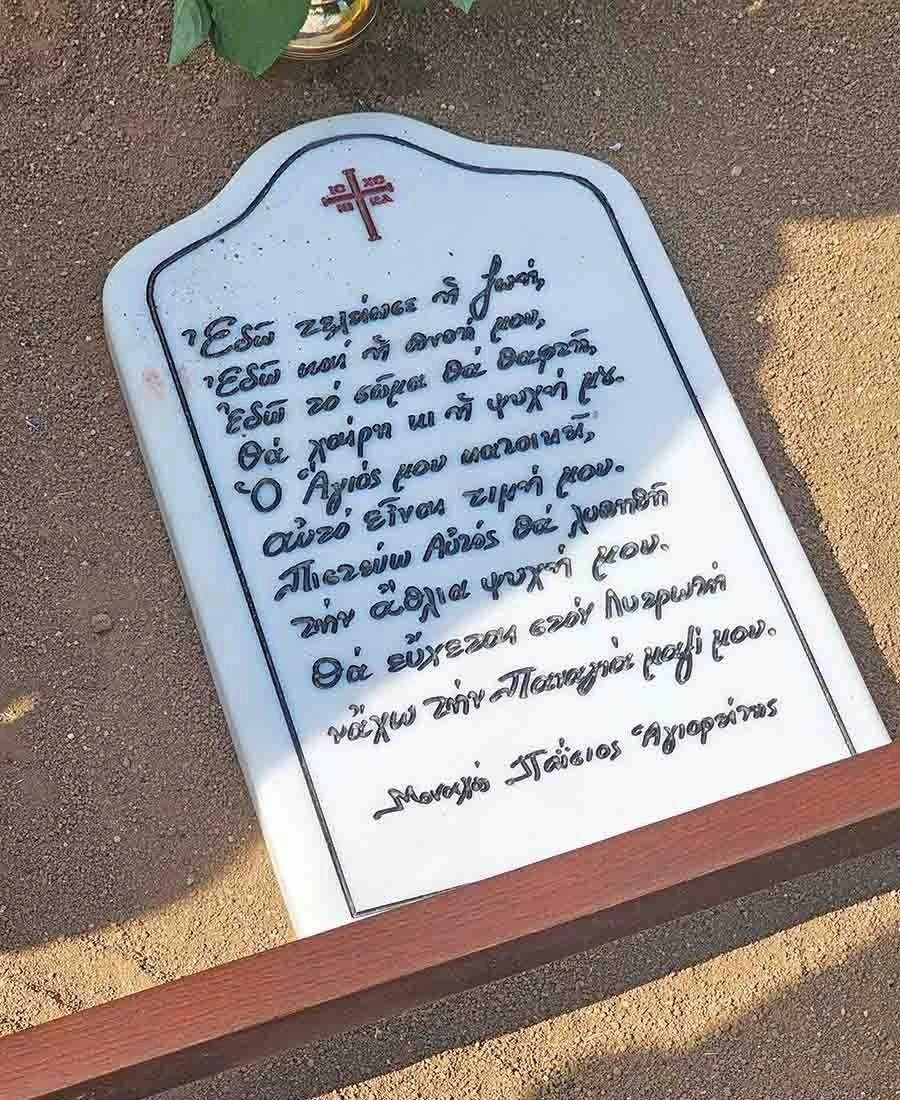 ΙC XC
ΝΙ ΚΑ
Ἐδῶ τελείωσε ἡ ζωή,
Ἐδῶ καί ἡ πνοή μου,
Ἐδῶ τό σῶμα θά θαφτῆ,
θά χαίρη κι ἡ ψυχή μου.
Ὁ Ἅγιός μου κατοικεῖ,
αὐτό εἶναι τιμή μου.
Πιστεύω Αὐτός θά λυπηθῆ
τήν ἄθλια ψυχή μου.
Θά εὔχεται στόν Λυτρωτή
νἄχω τήν Παναγιά μαζί μου.
Μοναχός Παΐσιος Ἁγιορείτης